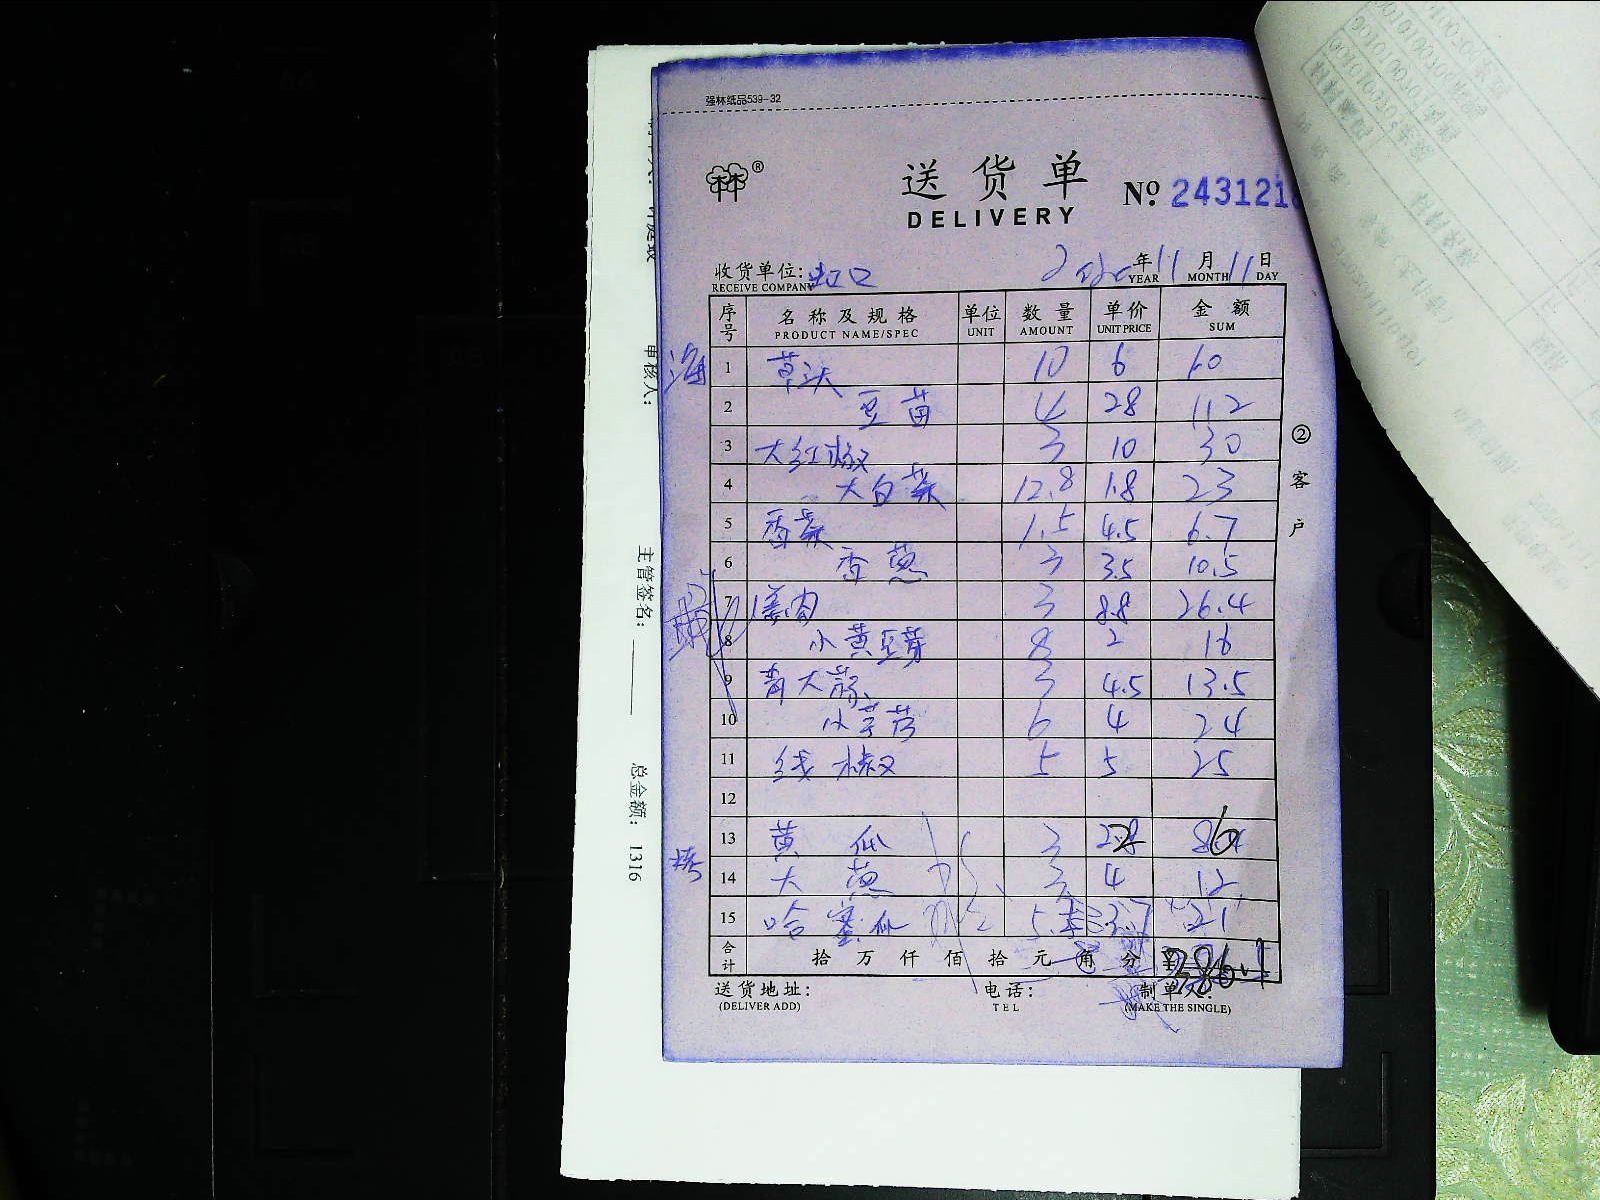 强林纸品539-32
送货单
DELIVERY
No. 2431218
收货单位: 虹口 年 11 月 11 日
RECEIVE COMPANY YEAR MONTH DAY
序号 名称及规格 单位 数量 单价 金额
PRODUCT NAME/SPEC UNIT AMOUNT UNIT PRICE SUM
1 草头 10 6 60
2 豆苗 4 28 112
3 大红椒 3 10 30
4 大白菜 12.8 1.8 23
5 香菜 1.5 4.5 6.7
6 香葱 3 3.5 10.5
7 姜肉 3 8.8 26.4
8 小黄豆芽 8 2 16
9 青大蒜 3 4.5 13.5
10 小芋艿 6 4 24
11 线椒 5 5 25
12
13 黄瓜 3
14 大葱 3 4 12
15 哈蜜瓜 3.7 21
合计 拾 万 仟 佰 拾 元 角 分 ¥
送货地址: 电话: 制单人:
(DELIVER ADD) TEL (MAKE THE SINGLE)
② 客户
审核人:
主管签名:
总金额: 1316